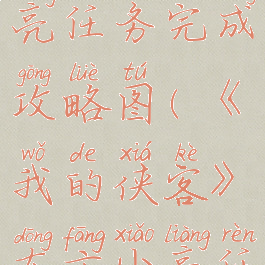 亮任务完成
gòng lüè tú
攻略图(《
wǒ de xiá kè
我的侠客》
dōng fāng xiǎo liàng rèn
东方小亮任